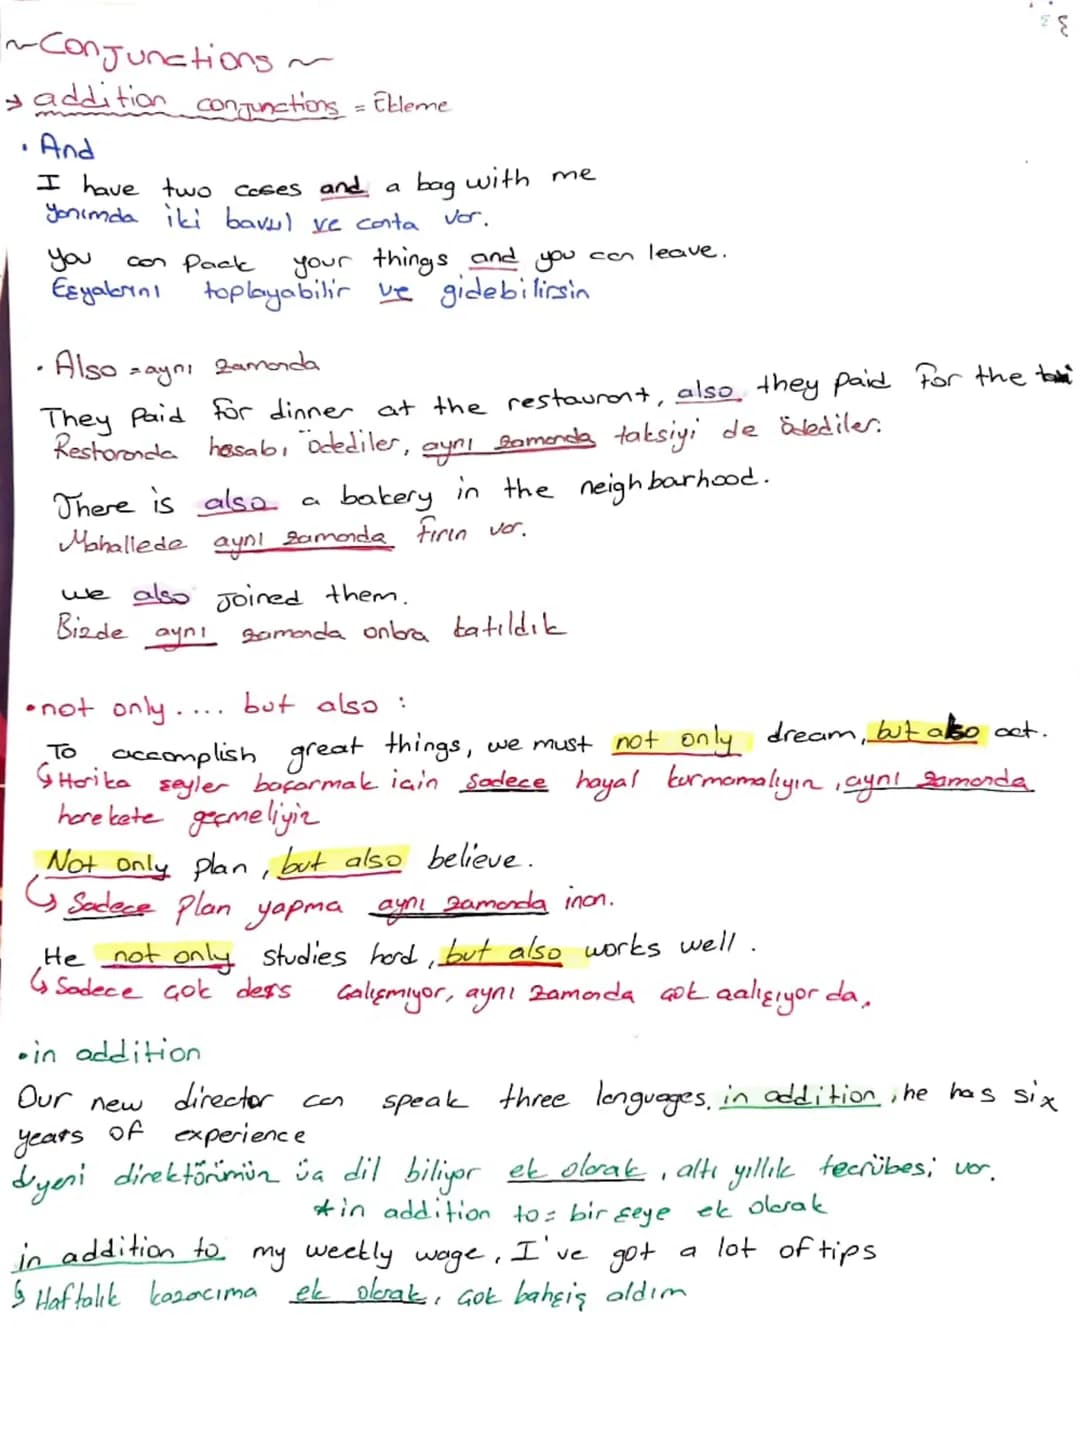 ~Conjunctions~
→ addition conjunctions = Ekleme
• And
I have two cases and a bag with me
Yanımda iki bavul ve canta var.
you can pack your things and you can leave.
Eşyalarını toplayabilir ve gidebilirsin
• Also = aynı zamanda
They paid for dinner at the restaurant, also they paid for the taxi
Restoranda hesabı ödediler, aynı zamanda taksiyi de ödediler.
There is also a bakery in the neighbarhood.
Mahallede aynı zamanda fırın var.
we also joined them.
Bizde aynı zamanda onlara katıldık
• not only.... but also :
To accomplish great things, we must not only dream, but also act.
↳ Harika şeyler başarmak için sadece hayal kurmamalıyın, aynı zamanda
harekete geçmeliyiz
Not only plan, but also believe.
↳ Sadece plan yapma aynı zamanda inan.
He not only studies hard, but also works well.
↳ Sadece çok ders çalışmıyor, aynı zamanda çok çalışıyor da.
• in addition
Our new director can speak three languages, in addition, he has six
years of experience
↳ yeni direktörümün üç dil biliyor ek olarak, altı yıllık tecrübesi var.
* in addition to = bir şeye ek olarak
in addition to my weekly wage, I've got a lot of tips
↳ Haftalık kazacıma ek olarak, çok bahşiş aldım